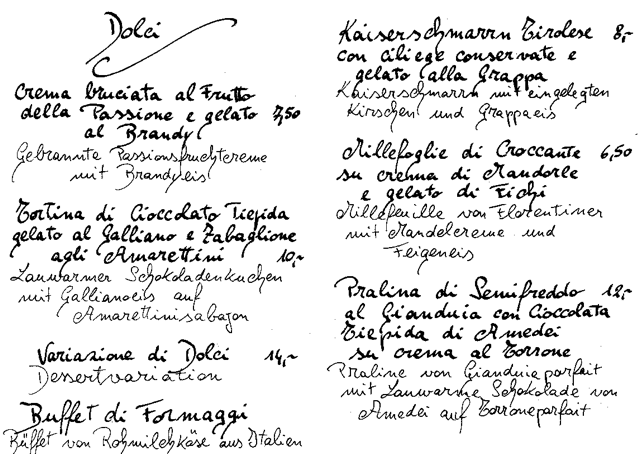 Dolci
Crema bruciata al Frutto
della Passione e gelato 7,50
al Brandy
Gebrannte Passionsfruchtcreme
mit Brandyeis
Tortina di Cioccolato Tiepida
gelato al Galliano e Zabaglione
agli Amarettini 10,-
Lauwarmer Schokoladenkuchen
mit Gallianoeis auf
Amarettinisabajon
Variazione di Dolci 14,-
Dessertvariation
Buffet di Formaggi
Büffet von Rohmilchkäse aus Italien
Kaiserschmarrn Tirolese 8,-
con ciliege conservate e
gelato alla Grappa
Kaiserschmarrn mit eingelegten
Kirschen und Grappaeis
Millefoglie di Croccante 6,50
su crema di Mandorle
e gelato di Fichi
Millefeuille von Florentiner
mit Mandelcreme und
Feigeneis
Pralina di Semifreddo 12,-
al Gianduia con Cioccolata
Tiepida di Amedei
su crema al Torrone
Praline von Gianduiaparfait
mit Lauwarme Schokolade von
Amedei auf Torroneparfait